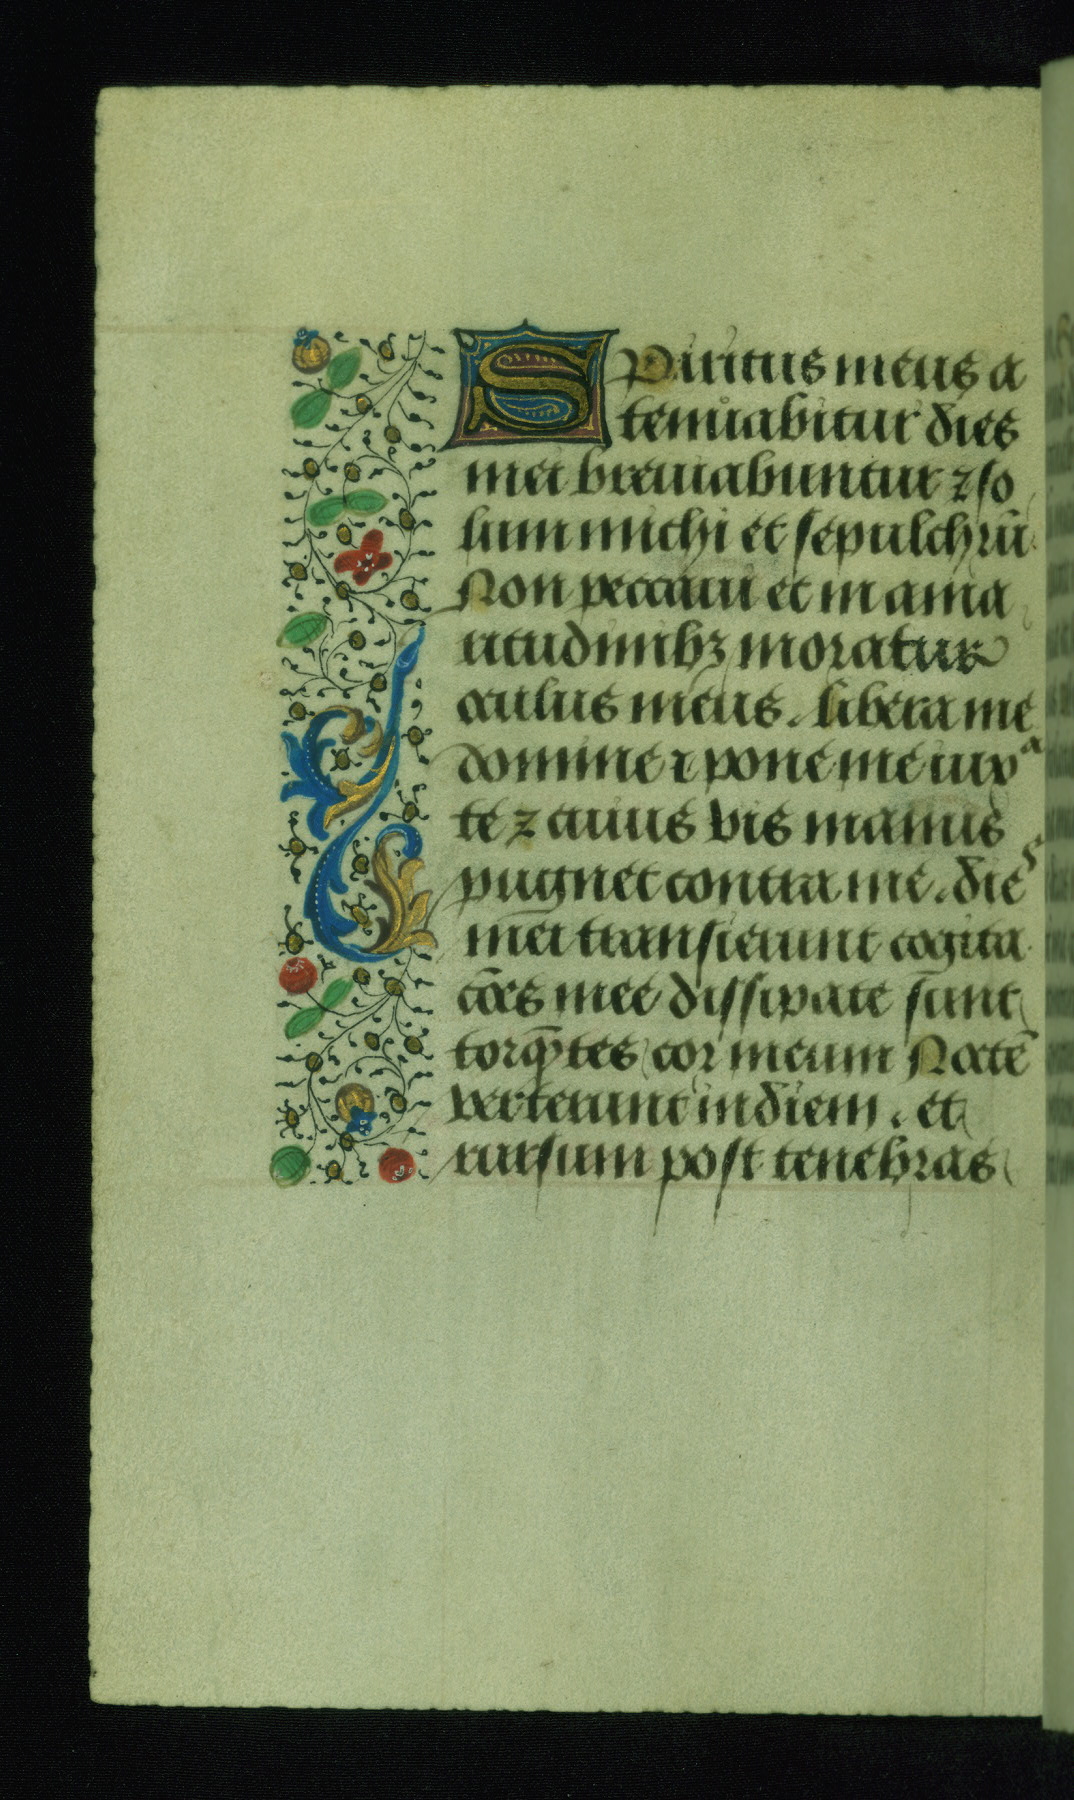 Spiritus meus a
tenuabitur dies
mei breuiabuntur ⁊ so
lum michi et sepulchrū.
Non peccaui et in ama
ritudinibꝫ moratur
oculus meus. libera me
domine ⁊ pone me iuxᵃ
te ⁊ cuius vis manus
pugnet contra me. dies
mei transierunt cogita
cōēs mee dissipate sunt
torqūtes cor meum Noctē
verterunt in diem. et
rursum post tenebras